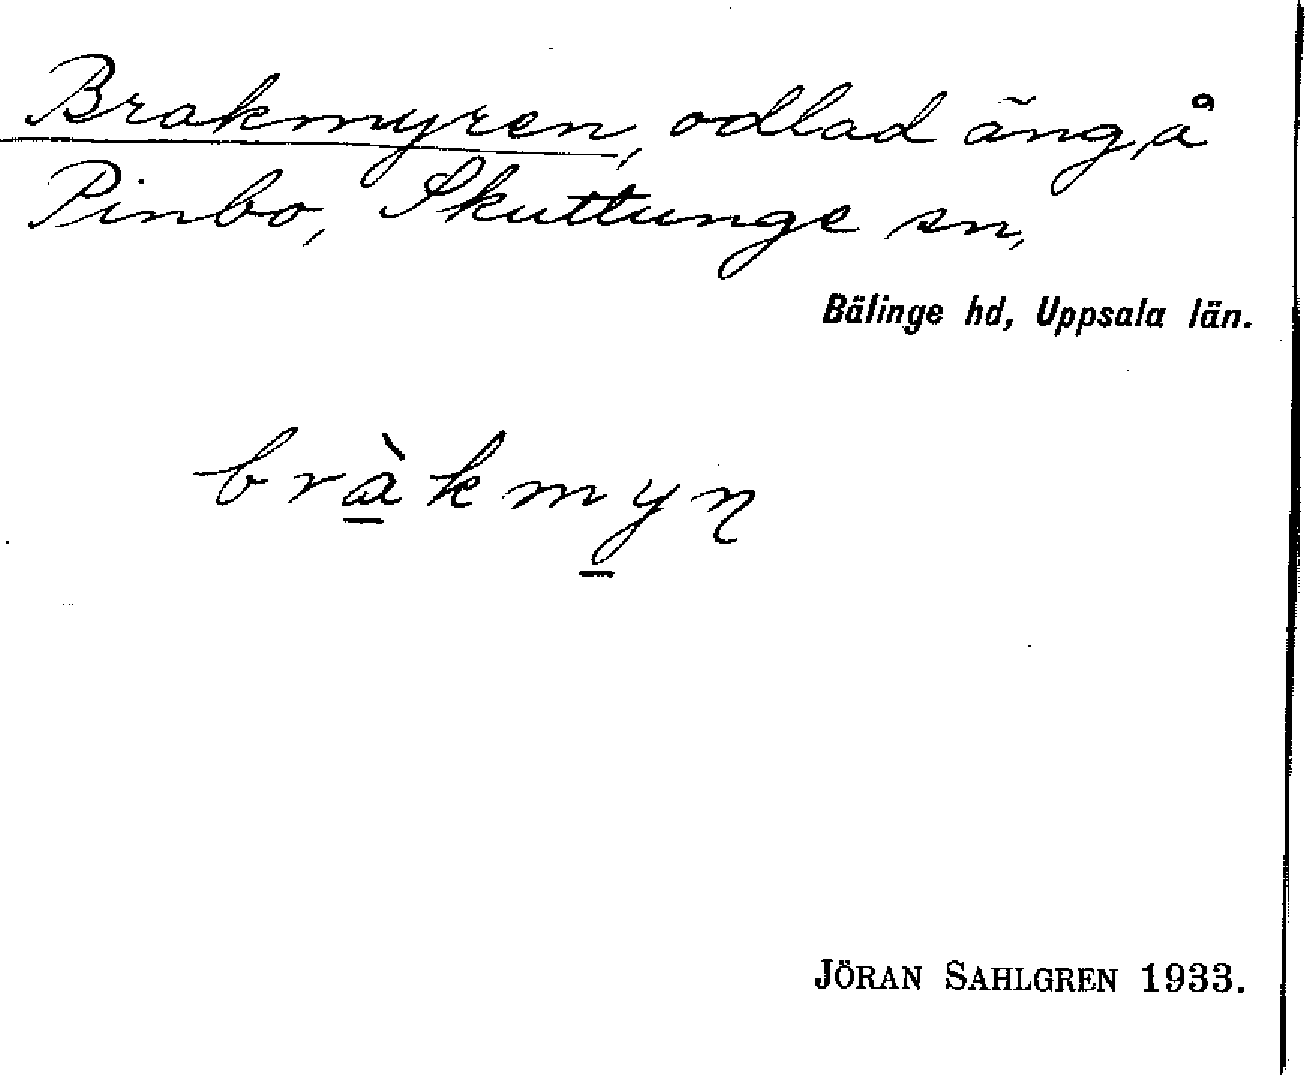 Brakmyren, odlad äng å
Pinbo, Skuttunge sn,
Bälinge hd, Uppsala län.
brà̱kmy̱ɳ
JÖRAN SAHLGREN 1933.